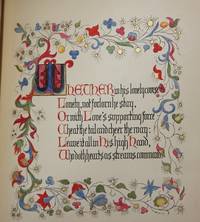 WHETHER in his lonely course
Lonely, not forlorn he stay,
Or with Love's supporting force
Cheat the toil and cheer the way:
Leave it all in His high Hand,
Who doth hearts as streams command.